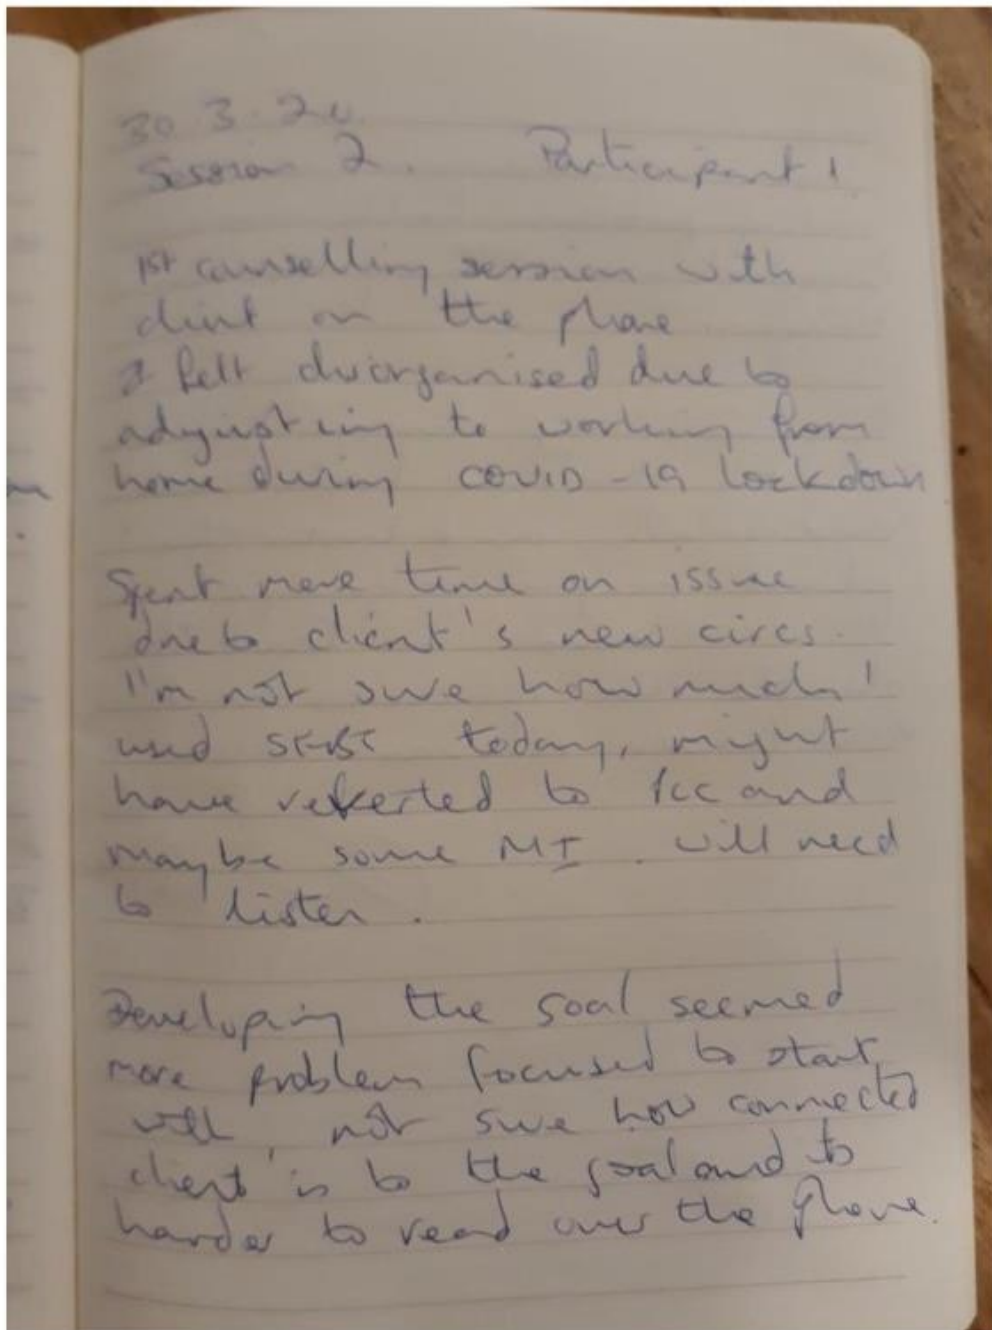 30.3.20
Session 2. Participant 1
1st counselling session with
client on the phone
I felt disorganised due to
adjusting to working from
home during COVID-19 lockdown
Spent more time on issue
due to client's new circs.
I'm not sure how much I
used SFBT today, might
have reverted to PCC and
maybe some MI. will need
to listen.
Developing the goal seemed
more problem focused to start
with, not sure how connected
client is to the goal and to
harder to read over the phone.